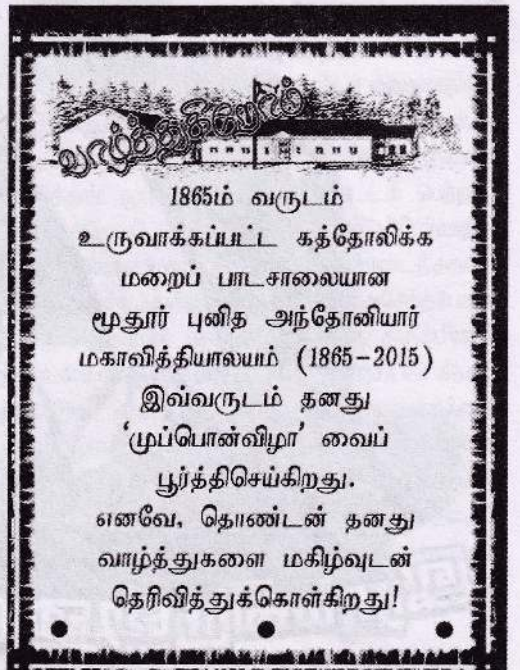 வாழ்த்துகிறோம்
1865ம் வருடம்
உருவாக்கப்பட்ட கத்தோலிக்க
மறைப் பாடசாலையான
மூதூர் புனித அந்தோனியார்
மகாவித்தியாலயம் (1865-2015)
இவ்வருடம் தனது
‘முப்பொன்விழா’ வைப்
பூர்த்திசெய்கிறது.
எனவே, தொண்டன் தனது
வாழ்த்துகளை மகிழ்வுடன்
தெரிவித்துக்கொள்கிறது!